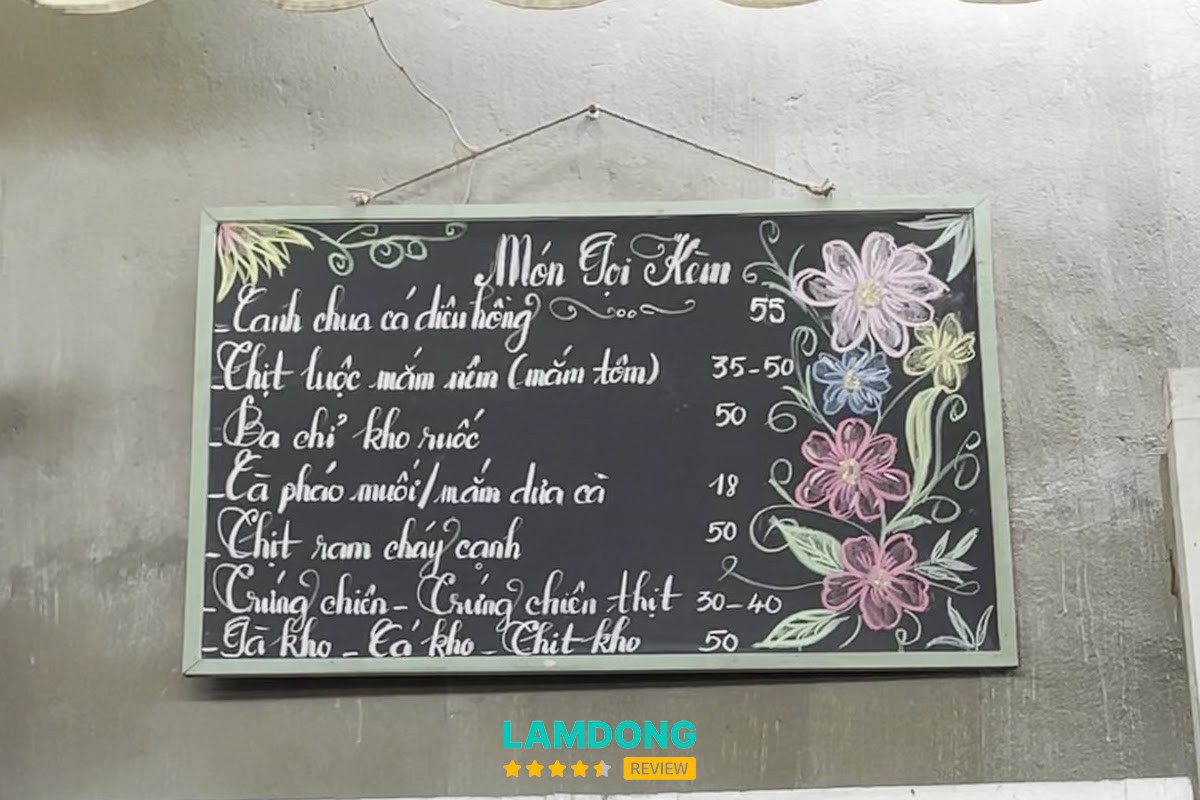 Món Gọi Kèm
- Canh chua cá diêu hồng 55
- Thịt luộc mắm nêm (mắm tôm) 35-50
- Ba chỉ kho ruốc 50
- Cà pháo muối/mắm dưa cà 18
- Thịt ram cháy cạnh 50
- Trứng chiên - Trứng chiên thịt 30-40
- Gà kho - Cá kho - Thịt kho 50
LAMDONG
REVIEW